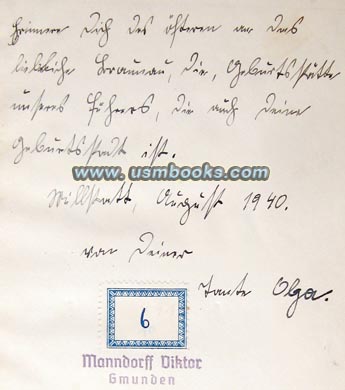 Erinnere Dich des öfteren an das
liebliche Braunau, die Geburtsstätte
unseres Führers, die auch deine
Geburtsstadt ist.
www.usmbooks.com
Willstatt, August 1940.
von Deiner
Tante Olga.
6
Manndorff Viktor
Gmunden